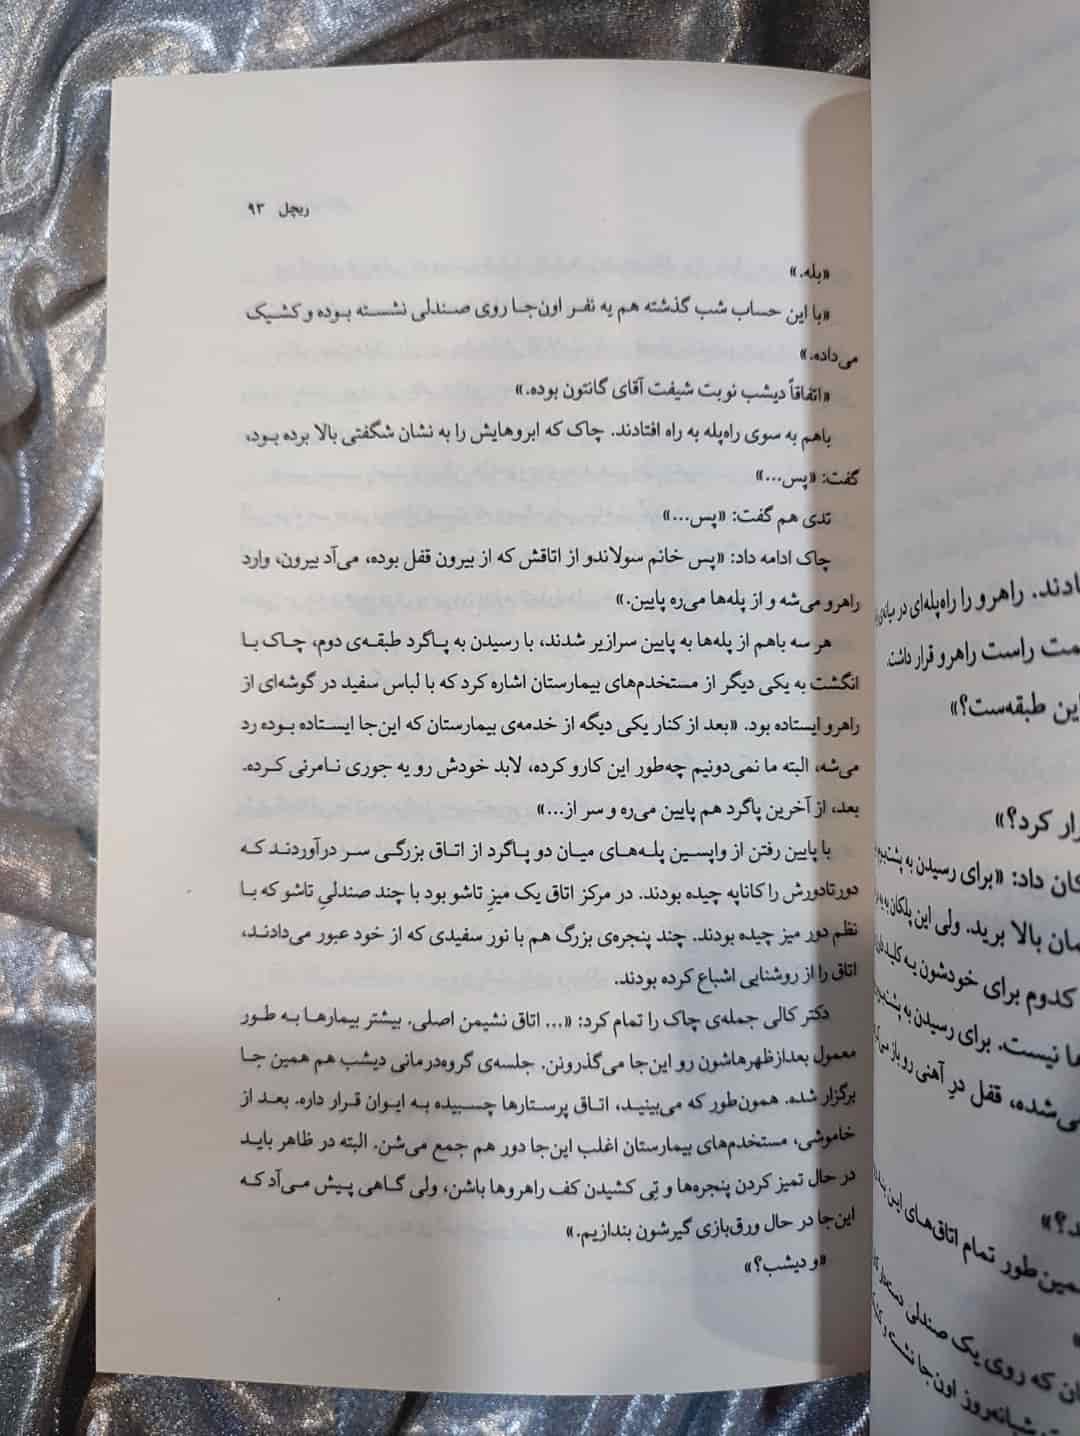 ریچل ۹۳
«بله.»
«با این حساب شب گذشته هم یه نفر اون‌جا روی صندلی نشسته بوده و کشیک
می‌داده.»
«اتفاقاً دیشب نوبت شیفت آقای گانتون بوده.»
باهم به سوی راه‌پله به راه افتادند. چاک که ابروهایش را به نشان شگفتی بالا برده بود،
گفت: «پس...»
تدی هم گفت: «پس...»
چاک ادامه داد: «پس خانم سولاندو از اتاقش که از بیرون قفل بوده، می‌آد بیرون، وارد
راهرو می‌شه و از پله‌ها می‌ره پایین.»
هر سه باهم از پله‌ها به پایین سرازیر شدند، با رسیدن به پاگرد طبقه‌ی دوم، چاک با
انگشت به یکی دیگر از مستخدم‌های بیمارستان اشاره کرد که با لباس سفید در گوشه‌ای از
راهرو ایستاده بود. «بعد از کنار یکی دیگه از خدمه‌ی بیمارستان که این‌جا ایستاده بوده رد
می‌شه، البته ما نمی‌دونیم چه‌طور این کارو کرده، لابد خودش رو یه جوری نامرئی کرده.
بعد، از آخرین پاگرد هم پایین می‌ره و سر از...»
با پایین رفتن از واپسین پله‌های میان دو پاگرد از اتاق بزرگی سر درآوردند که
دورتادورش را کاناپه چیده بودند. در مرکز اتاق یک میزِ تاشو بود با چند صندلیِ تاشو که با
نظم دور میز چیده بودند. چند پنجره‌ی بزرگ هم با نور سفیدی که از خود عبور می‌دادند،
اتاق را از روشنایی اشباع کرده بودند.
دکتر کالی جمله‌ی چاک را تمام کرد: «... اتاق نشیمن اصلی. بیشتر بیمارها به طور
معمول بعدازظهرهاشون رو این‌جا می‌گذرونن. جلسه‌ی گروه‌درمانی دیشب هم همین جا
برگزار شده. همون‌طور که می‌بینید، اتاق پرستارها چسبیده به ایوان قرار داره. بعد از
خاموشی، مستخدم‌های بیمارستان اغلب این‌جا دور هم جمع می‌شن. البته در ظاهر باید
در حال تمیز کردن پنجره‌ها و تِی کشیدن کف راهروها باشن، ولی گاهی پیش می‌آد که
این‌جا در حال ورق‌بازی گیرشون بندازیم.»
«و دیشب؟»
راهرو را راه‌پله‌ای در
راست راهرو قرار داشت.
این طبقه‌ست؟»
کرد؟»
داد: «برای رسیدن به
بالا برید. ولی این پلکان
کدوم برای خودشون یه
نیست. برای رسیدن به
قفل درِ آهنی رو باز
تمام اتاق‌های این
که روی یک صندلی
شبانه‌روز اون‌جا نشسته و